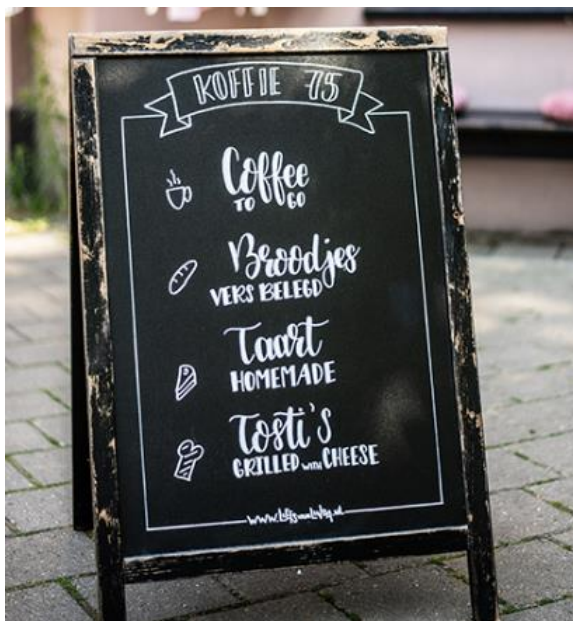 KOFFIE 75
Coffee
TO GO
Broodjes
VERS BELEGD
Taart
HOMEMADE
Tosti's
GRILLED WITH CHEESE